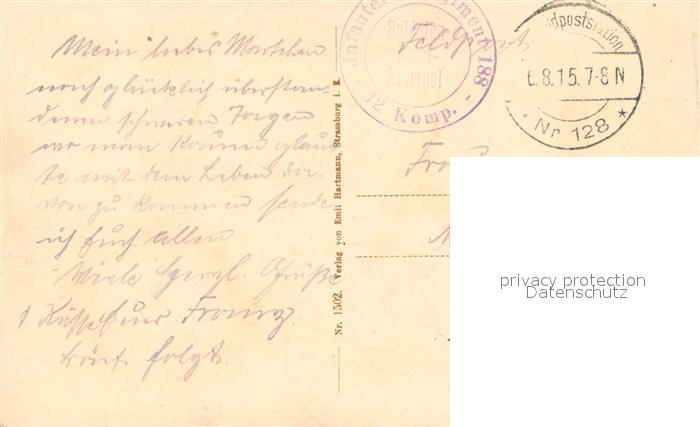 Mein liebes Martchen
nach glücklich überstan-
denen schweren Tagen
wo man kaum glaub
te mit dem Leben da-
von zu kommen sende
ich Euch allen
Viele herzl. Grüße
u Küsse Euer Franz.
Brief folgt.
Nr. 1502. Verlag von Emil Hartmann, Strassburg i. E.
Infanterie Regiment 188
Soldaten
Stempel
12. Komp.
Feldpost
Feldpoststation
6.8.15.7-8N
* Nr 128 *
Frau
privacy protection
Datenschutz